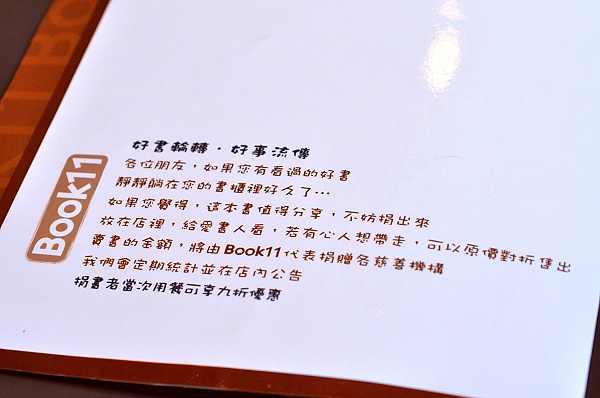 好書輪轉．好事流傳
各位朋友，如果您有看過的好書
靜靜躺在您的書櫃裡好久了…
如果您覺得，這本書值得分享，不妨捐出來
放在店裡，給愛書人看，若有心人想帶走，可以原價對折售出
賣書的金額，將由Book11代表捐贈各慈善機構
我們會定期統計並在店內公告
捐書者當次用餐可享九折優惠
Book11